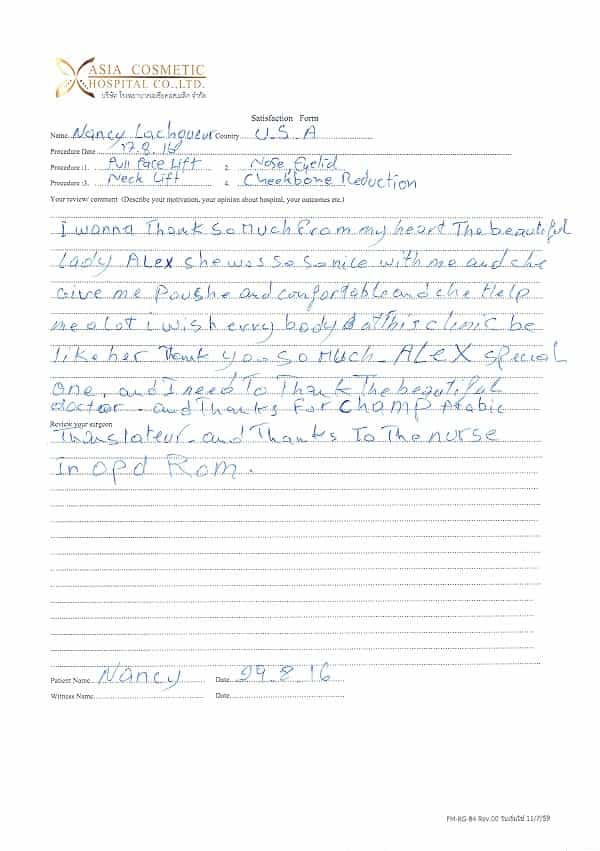 ASIA COSMETIC
HOSPITAL CO.,LTD.
บริษัท โรงพยาบาลเอเชียคอสเมติค จำกัด
Satisfaction Form
Name Nancy Lachgueur Country U.S.A
Procedure Date 17.8.16
Procedure :1. Full Face Lift 2. Nose, Eyelid
Procedure :3. Neck Lift 4. Cheekbone Reduction
Your review/ comment (Describe your motivation, your opinion about hospital, your outcomes etc.)
I wanna Thank so Much from my heart The beautiful
Lady ALEX she was so so nice with me and che
Give me Poushe and confortable and che Help
me a lot i wish erry body at this clinic be
like her Thank you so Much - ALEX special
one, and I need To Thank The beautiful
doctor - and Thanks For Champ Arabic
Review your surgeon
Translateur - and Thanks To The nurse
In opd Rom.
Patient Name Nancy Date 29.8.16
Witness Name Date
FM-RG-84 Rev.00 วันเริ่มใช้ 11/7/59